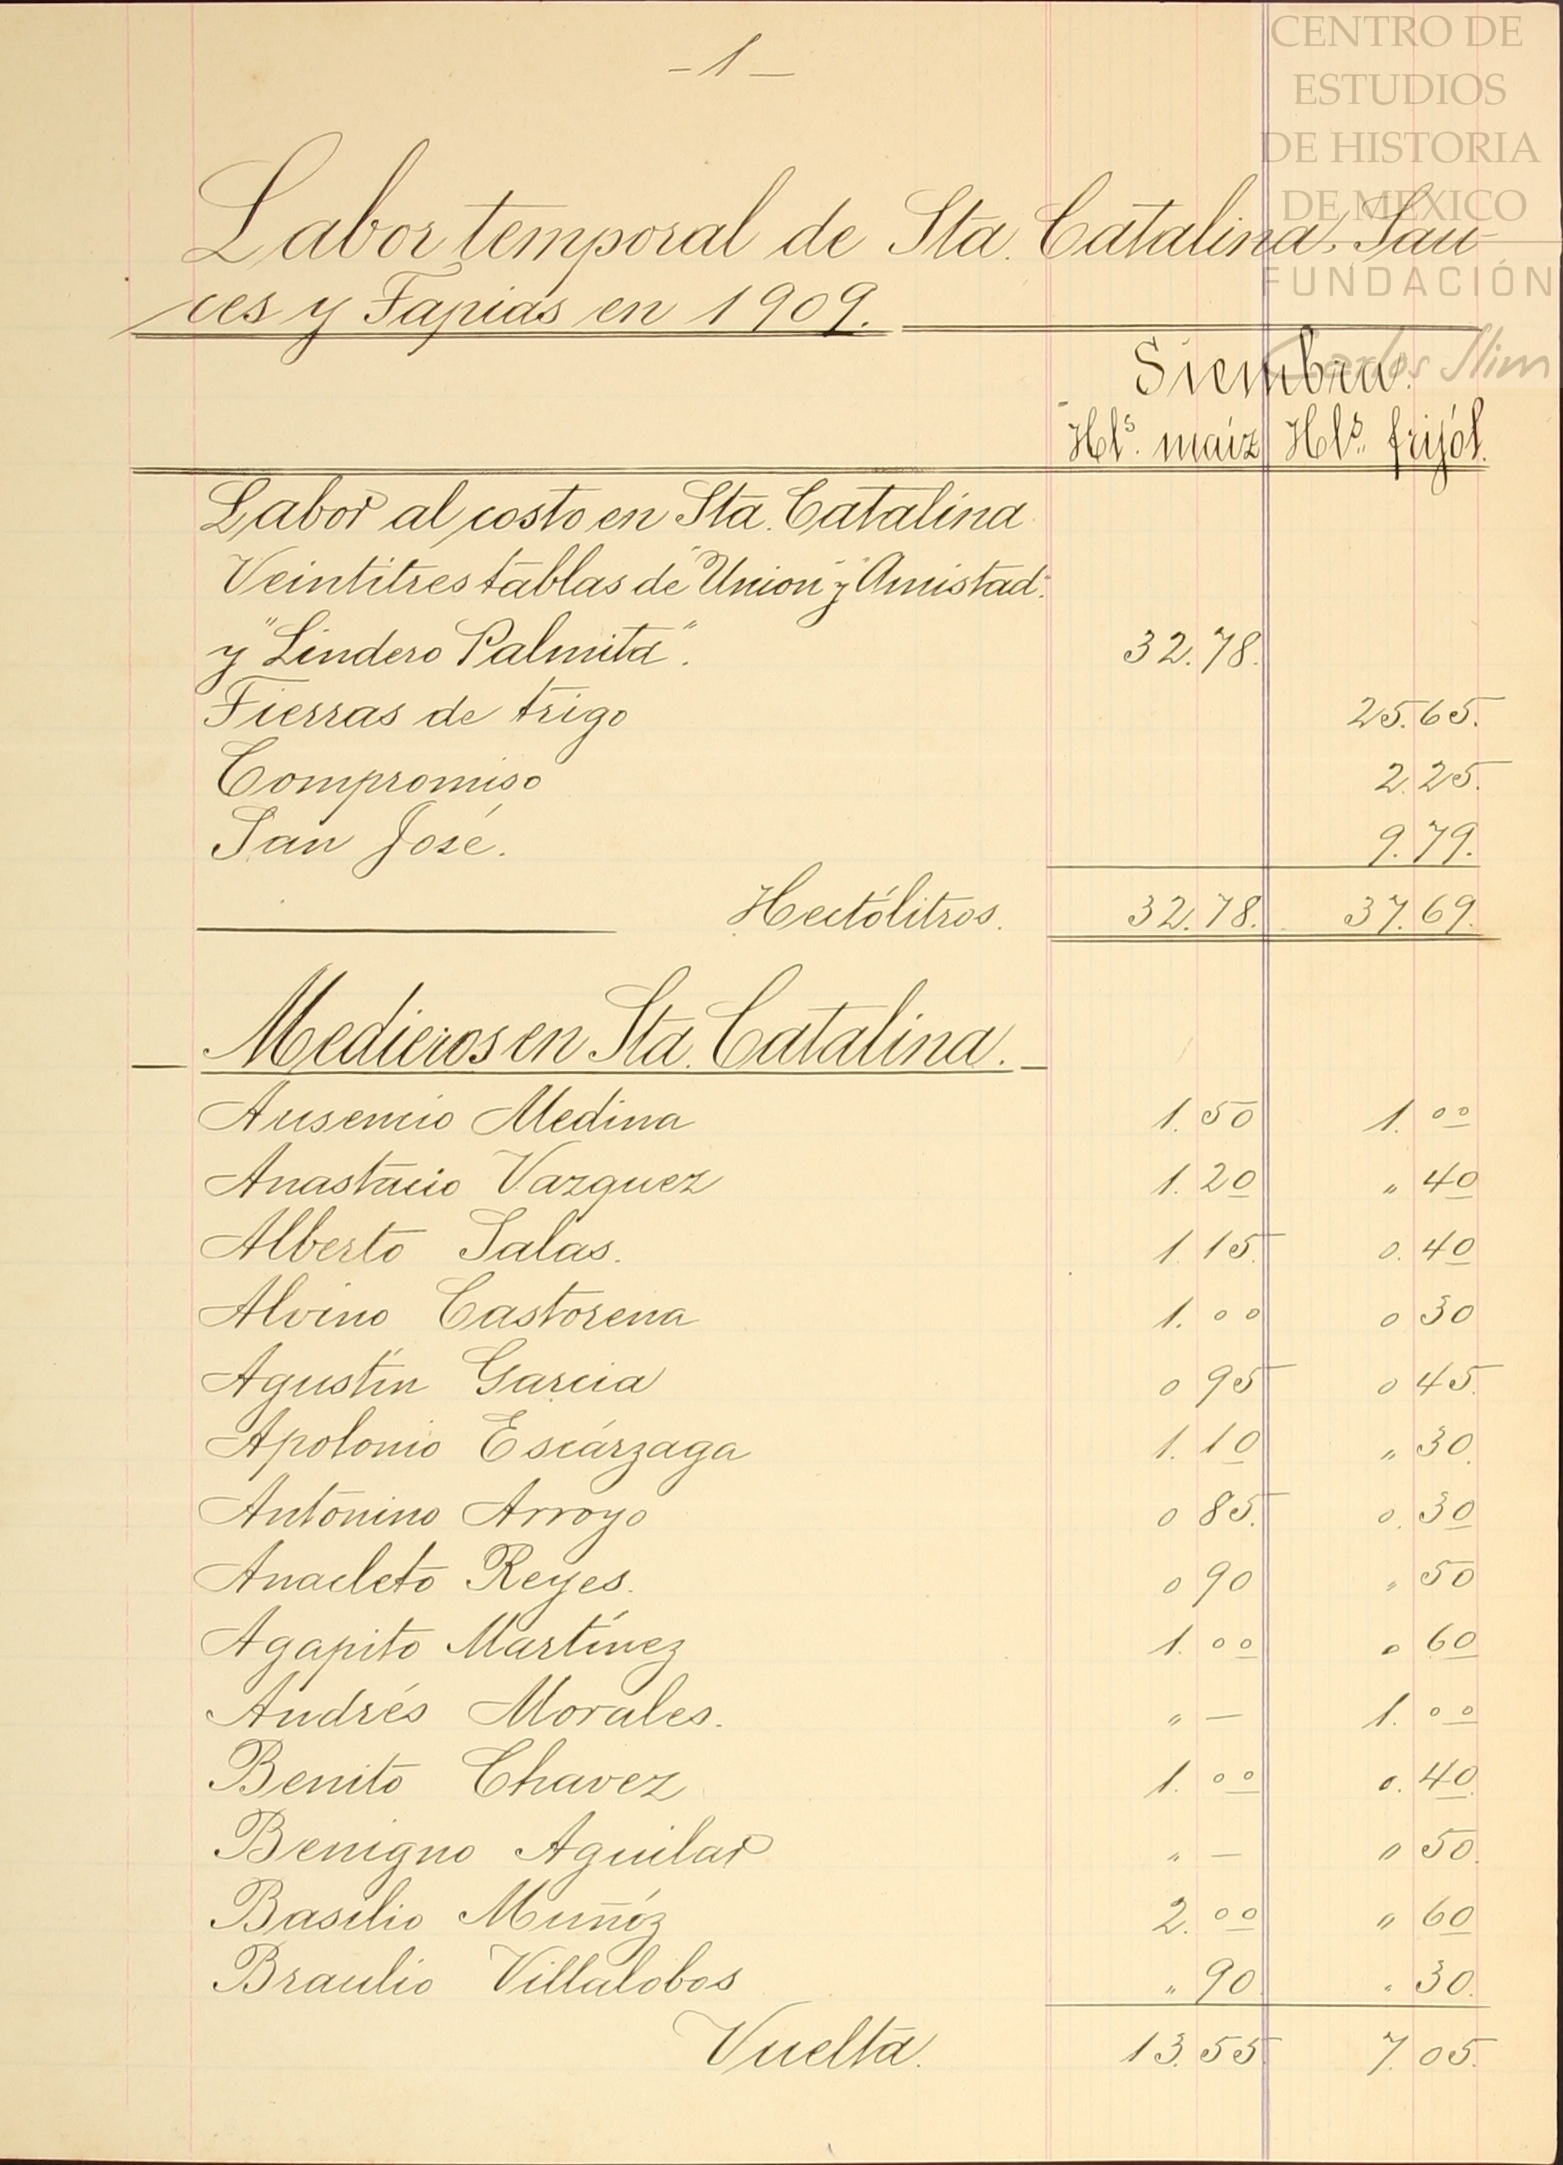 – 1 –
CENTRO DE
ESTUDIOS
DE HISTORIA
DE MEXICO
FUNDACIÓN
Carlos Slim
Labor temporal de Sta. Catalina, Sau-
ces y Tapias en 1909.
Siembra.
Hls. maíz Hls. frijól.
Labor al costo en Sta. Catalina
Veintitres tablas de "Union" y "Amistad"
y "Lindero Palmita". 32.78.
Tierras de trigo 25.65.
Compromiso 2.25.
San José. 9.79.
Hectólitros. 32.78. 37.69.
Medieros en Sta. Catalina.
Ausencio Medina 1.50 1.00
Anastacio Vazquez 1.20 " 40
Alberto Salas. 1.15. 0.40
Alvino Castorena 1.00 0 30
Agustín Garcia 0 95 0 45.
Apolonio Escárzaga 1.10 " 30.
Antonino Arroyo 0 85. 0.30
Anacleto Reyes. 0 90 " 50
Agapito Martínez 1.00 0 60
Andrés Morales. " — 1.00
Benito Chavez 1.00 0.40.
Benigno Aguilar " — 0 50.
Basilio Muñóz 2.00 " 60
Braulio Villalobos " 90. " 30.
Vuelta. 13.55 7.05.